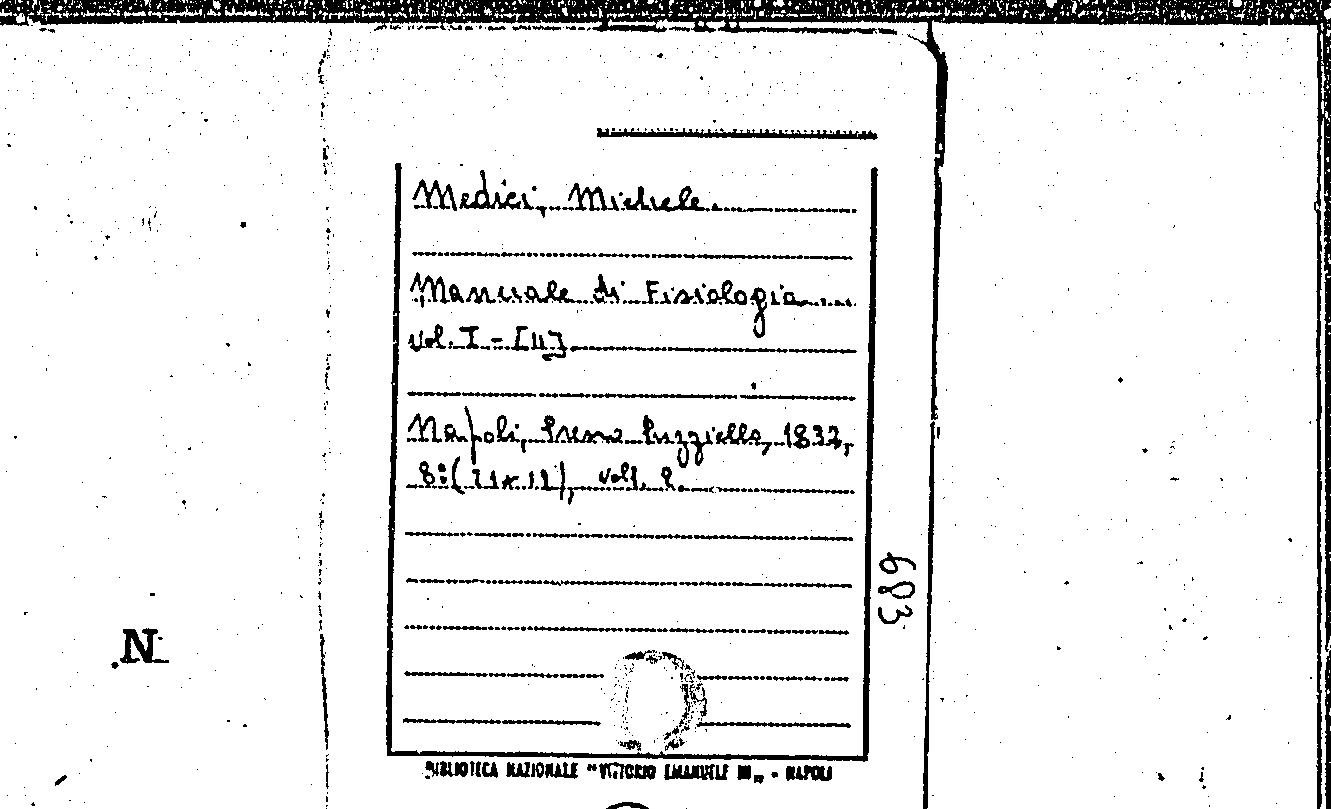 Medici, Michele.
Manuale di Fisiologia....
Vol. I - [II].
Napoli, Presso Puzziello, 1832,
8º (21x12), voll. 2.
683
N
BIBLIOTECA NAZIONALE "VITTORIO EMANUELE III" - NAPOLI